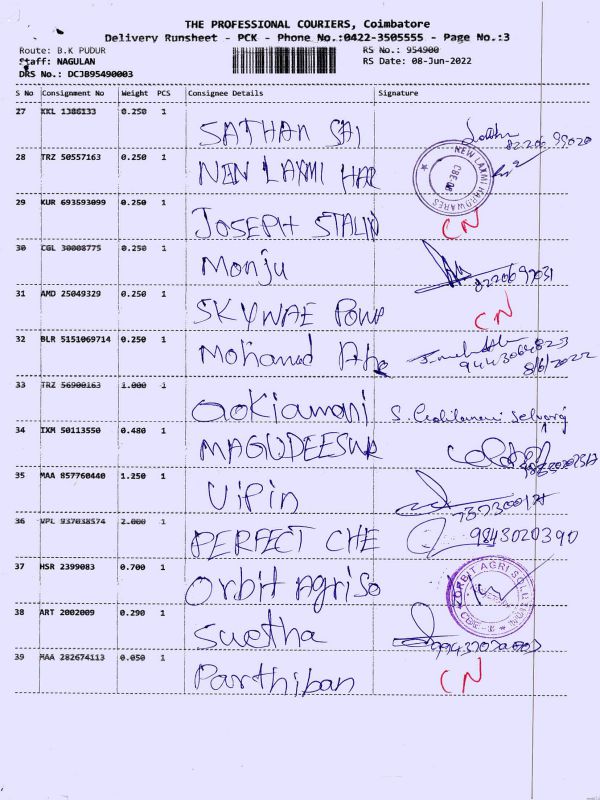 THE PROFESSIONAL COURIERS, Coimbatore
Delivery Runsheet - PCK - Phone No.:0422-3505555 - Page No.:3
Route: B.K PUDUR RS No.: 954900
Staff: NAGULAN RS Date: 08-Jun-2022
DRS No.: DCJB95490003
S No Consignment No Weight PCS Consignee Details Signature
27 KKL 1386133 0.250 1 SATHAN SAI 82206 99020
28 TRZ 50557163 0.250 1 NEW LAXMI HAR NEW LAXMI HARDWARES
29 KUR 693593099 0.250 1 JOSEPH STALIN CN
30 CGL 30008775 0.250 1 Monju
31 AMD 25049329 0.250 1 SKYWAE POWP CN
32 BLR 5151069714 0.250 1 Mohamed 9443064823
8/6/2022
33 TRZ 56900163 1.000 1 Gokiamani
34 IXM 50113550 0.480 1 MAGUDEESWA
35 MAA 857760440 1.250 1 Vipin
36 VPL 937038574 2.000 1 PERFECT CHE 9843020390
37 HSR 2399083 0.700 1 Orbit Agriso ORBIT AGRI
38 ART 2002009 0.290 1 Suetha
39 MAA 282674113 0.050 1 Parthiban CN